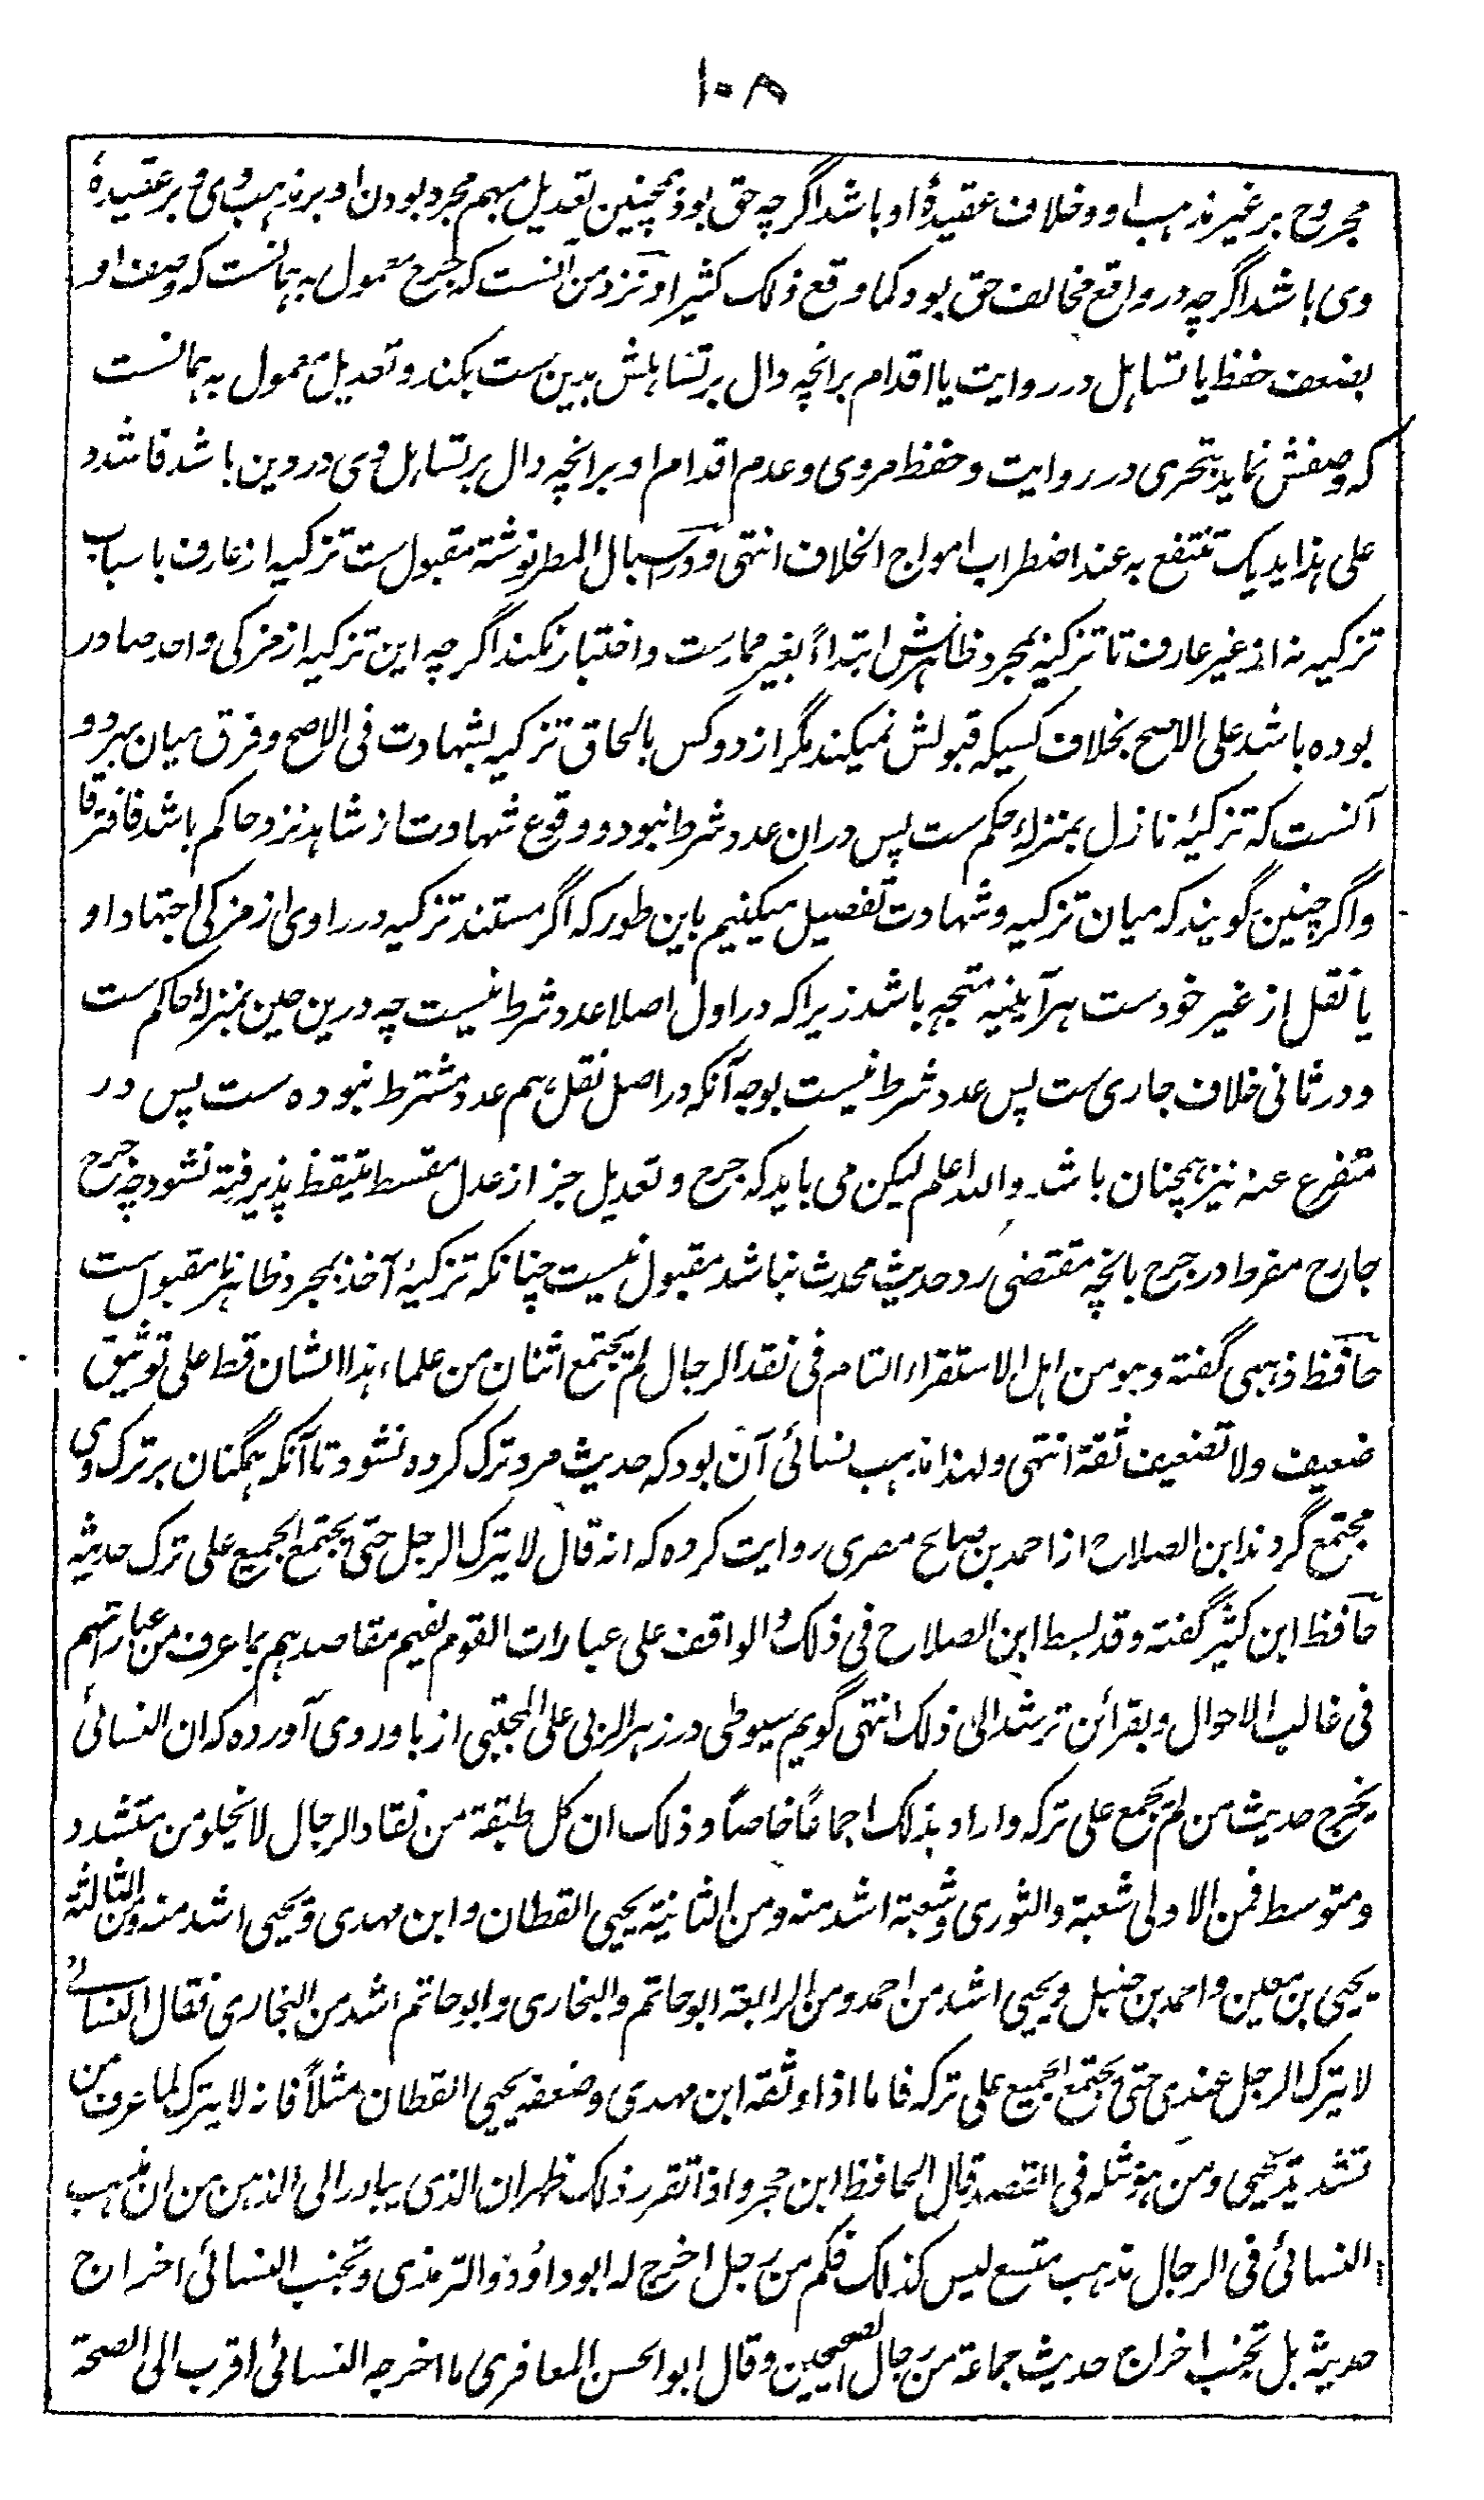 ۱۰۸
مجروح بر غیر مذہب او و خلاف عقیدۂ او باشد اگرچہ حق بود ہمچنین تعدیل مبہم مجرد بودن او بر مذہب وی و بر عقیدۂ
وی باشد اگرچہ در واقع مخالف حق بود کما وقع ذلک کثیرا و نزد من آنست کہ جرح معمول بہ ہمانست کہ وصف او
بضعف حفظ یا تساہل در روایت یا اقدام بر انچہ دال بر تساہلش بدین ست بکند و تعدیل معمول بہ ہمانست
کہ وصفش نماید بتحری در روایت و حفظ مروی و عدم اقدام او بر انچہ دال بر تساہل وی در دین باشد فاشدد
علی ہذا یدیک تنتفع بہ عند اضطراب امواج الخلاف انتہی و در اسبال المطر نوشتہ مقبول ست تزکیہ از عارف باسباب
تزکیہ نہ از غیر عارف تا تزکیہ بمجرد ظاہرش ابتداءً بغیر ممارست و اختبار نکند اگرچہ این تزکیہ از مزکی واحد صادر
بودہ باشد علی الاصح بخلاف کسیکہ قبولش نمیکند مگر از دو کس بالحاق تزکیہ بشہادت فی الاصح و فرق میان ہر دو
آنست کہ تزکیۂ نازل بمنزلۂ حکم ست پس دران عدد شرط نبود و وقوع شہادت از شاہد نزد حاکم باشد فافترقا
و اگر چنین گویند کہ میان تزکیہ و شہادت تفصیل میکنیم باین طور کہ اگر مستند تزکیہ در راوی از مزکی اجتہاد او
یا نقل از غیر خودست ہرآیینہ متجہ باشد زیرا کہ در اول اصلا عدد شرط نیست چہ درین حین بمنزلۂ حاکم ست
و در ثانی خلاف جاری ست پس عدد شرط نیست بوجہ آنکہ در اصل نقل ہم عدد مشترط نبودہ ست پس در
متفرع عنہ نیز ہمچنان باشد واللہ اعلم لیکن می باید کہ جرح و تعدیل جز از عدل مقسط متیقظ پذیرفتہ نشود چہ جرح
جارح مفرط در جرح بانچہ مقتضی رد حدیث محدث نباشد مقبول نیست چنانکہ تزکیۂ آخذ بمجرد ظاہر نامقبول ست
حافظ ذہبی گفتہ و ہو من اہل الاستقراء التام فی نقد الرجال لم یجتمع اثنان من علماء ہذا الشان قط علی توثیق
ضعیف ولا تضعیف ثقۃ انتہی و لہذا مذہب نسائی آن بود کہ حدیث مرد ترک کردہ نشود تا آنکہ ہمگنان بر ترک وی
مجتمع گردند ابن الصلاح از احمد بن صالح مصری روایت کردہ کہ انہ قال لا یترک الرجل حتی یجتمع الجمیع علی ترک حدیثہ
حافظ ابن کثیر گفتہ و قد بسط ابن الصلاح فی ذلک و الواقف علی عبارات القوم یفہم مقاصدہم بما عرف من عباراتہم
فی غالب الاحوال و بقرائن ترشد الی ذلک انتہی گویم سیوطی در زہر الربی علی المجتبی از باوردی آوردہ کہ ان النسائی
یخرج حدیث من لم یجمع علی ترکہ و اراد بذلک اجماعًا خاصًا و ذلک ان کل طبقۃ من نقاد الرجال لا یخلو من متشدد
و متوسط فمن الاولی شعبۃ و الثوری و شعبۃ اشد منہ و من الثانیۃ یحیی القطان و ابن مہدی و یحیی اشد منہ و من الثالثۃ
یحیی بن معین و احمد بن حنبل و یحیی اشد من احمد و من الرابعۃ ابو حاتم و البخاری و ابو حاتم اشد من البخاری فقال النسائی
لا یترک الرجل عندی حتی یجتمع الجمیع علی ترکہ فاما اذا وثقہ ابن مہدی و ضعفہ یحیی القطان مثلًا فانہ لا یترک لما عرف من
تشدید یحیی و من ہو مثلہ فی النقد قال الحافظ ابن حجر و اذا تقرر ذلک ظہر ان الذی یبادر الی الذہن من ان مذہب
النسائی فی الرجال مذہب متسع لیس کذلک فکم من رجل اخرج لہ ابو داؤد و الترمذی و تجنب النسائی اخراج
حدیثہ بل تجنب اخراج حدیث جماعۃ من رجال الصحیحین و قال ابو الحسن المعافری ما اخرجہ النسائی اقرب الی الصحۃ